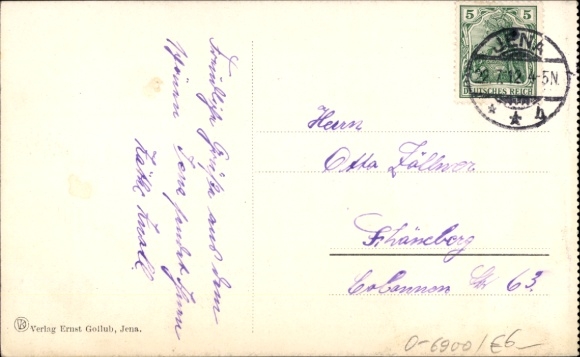 Freundliche Grüße aus dem
schönen Jena sendet Ihnen
Käthe
5
DEUTSCHES REICH
JENA
7.12. 4-5N.
* * 4
Herrn
Otto Zöllner
Schöneberg
Str. 65.
Verlag Ernst Gollub, Jena.
0-6900/€6-